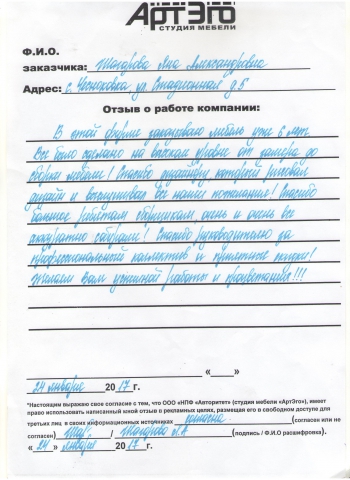 АРТЭГО
СТУДИЯ МЕБЕЛИ
Ф.И.О.
заказчика: Яна Александровна
Адрес: с. Чесноковка ул. Стадионная д.5
Отзыв о работе компании:
В этой фирме заказываю мебель уже 6 лет.
Все было сделано на высоком уровне от замера до
сборки мебели! Спасибо дизайнеру который рисовал
дизайн и выслушивал все наши пожелания! Спасибо
большое ребятам сборщикам, очень и очень все
аккуратно собрали! Спасибо руководителю за
профессиональный коллектив и приятные скидки!
Желаем Вам успешной работы и процветания!!!
« »
24 января 20 17 г.
*Настоящим выражаю свое согласие с тем, что ООО «НПФ «Авторитет» (студия мебели «АртЭго»), имеет
право использовать написанный мной отзыв в рекламных целях, размещая его в свободном доступе для
третьих лиц в своих информационных источниках согласна (согласен или не
согласен) / Я.А (подпись / Ф.И.О расшифровка).
« 24 » января 20 17 г.